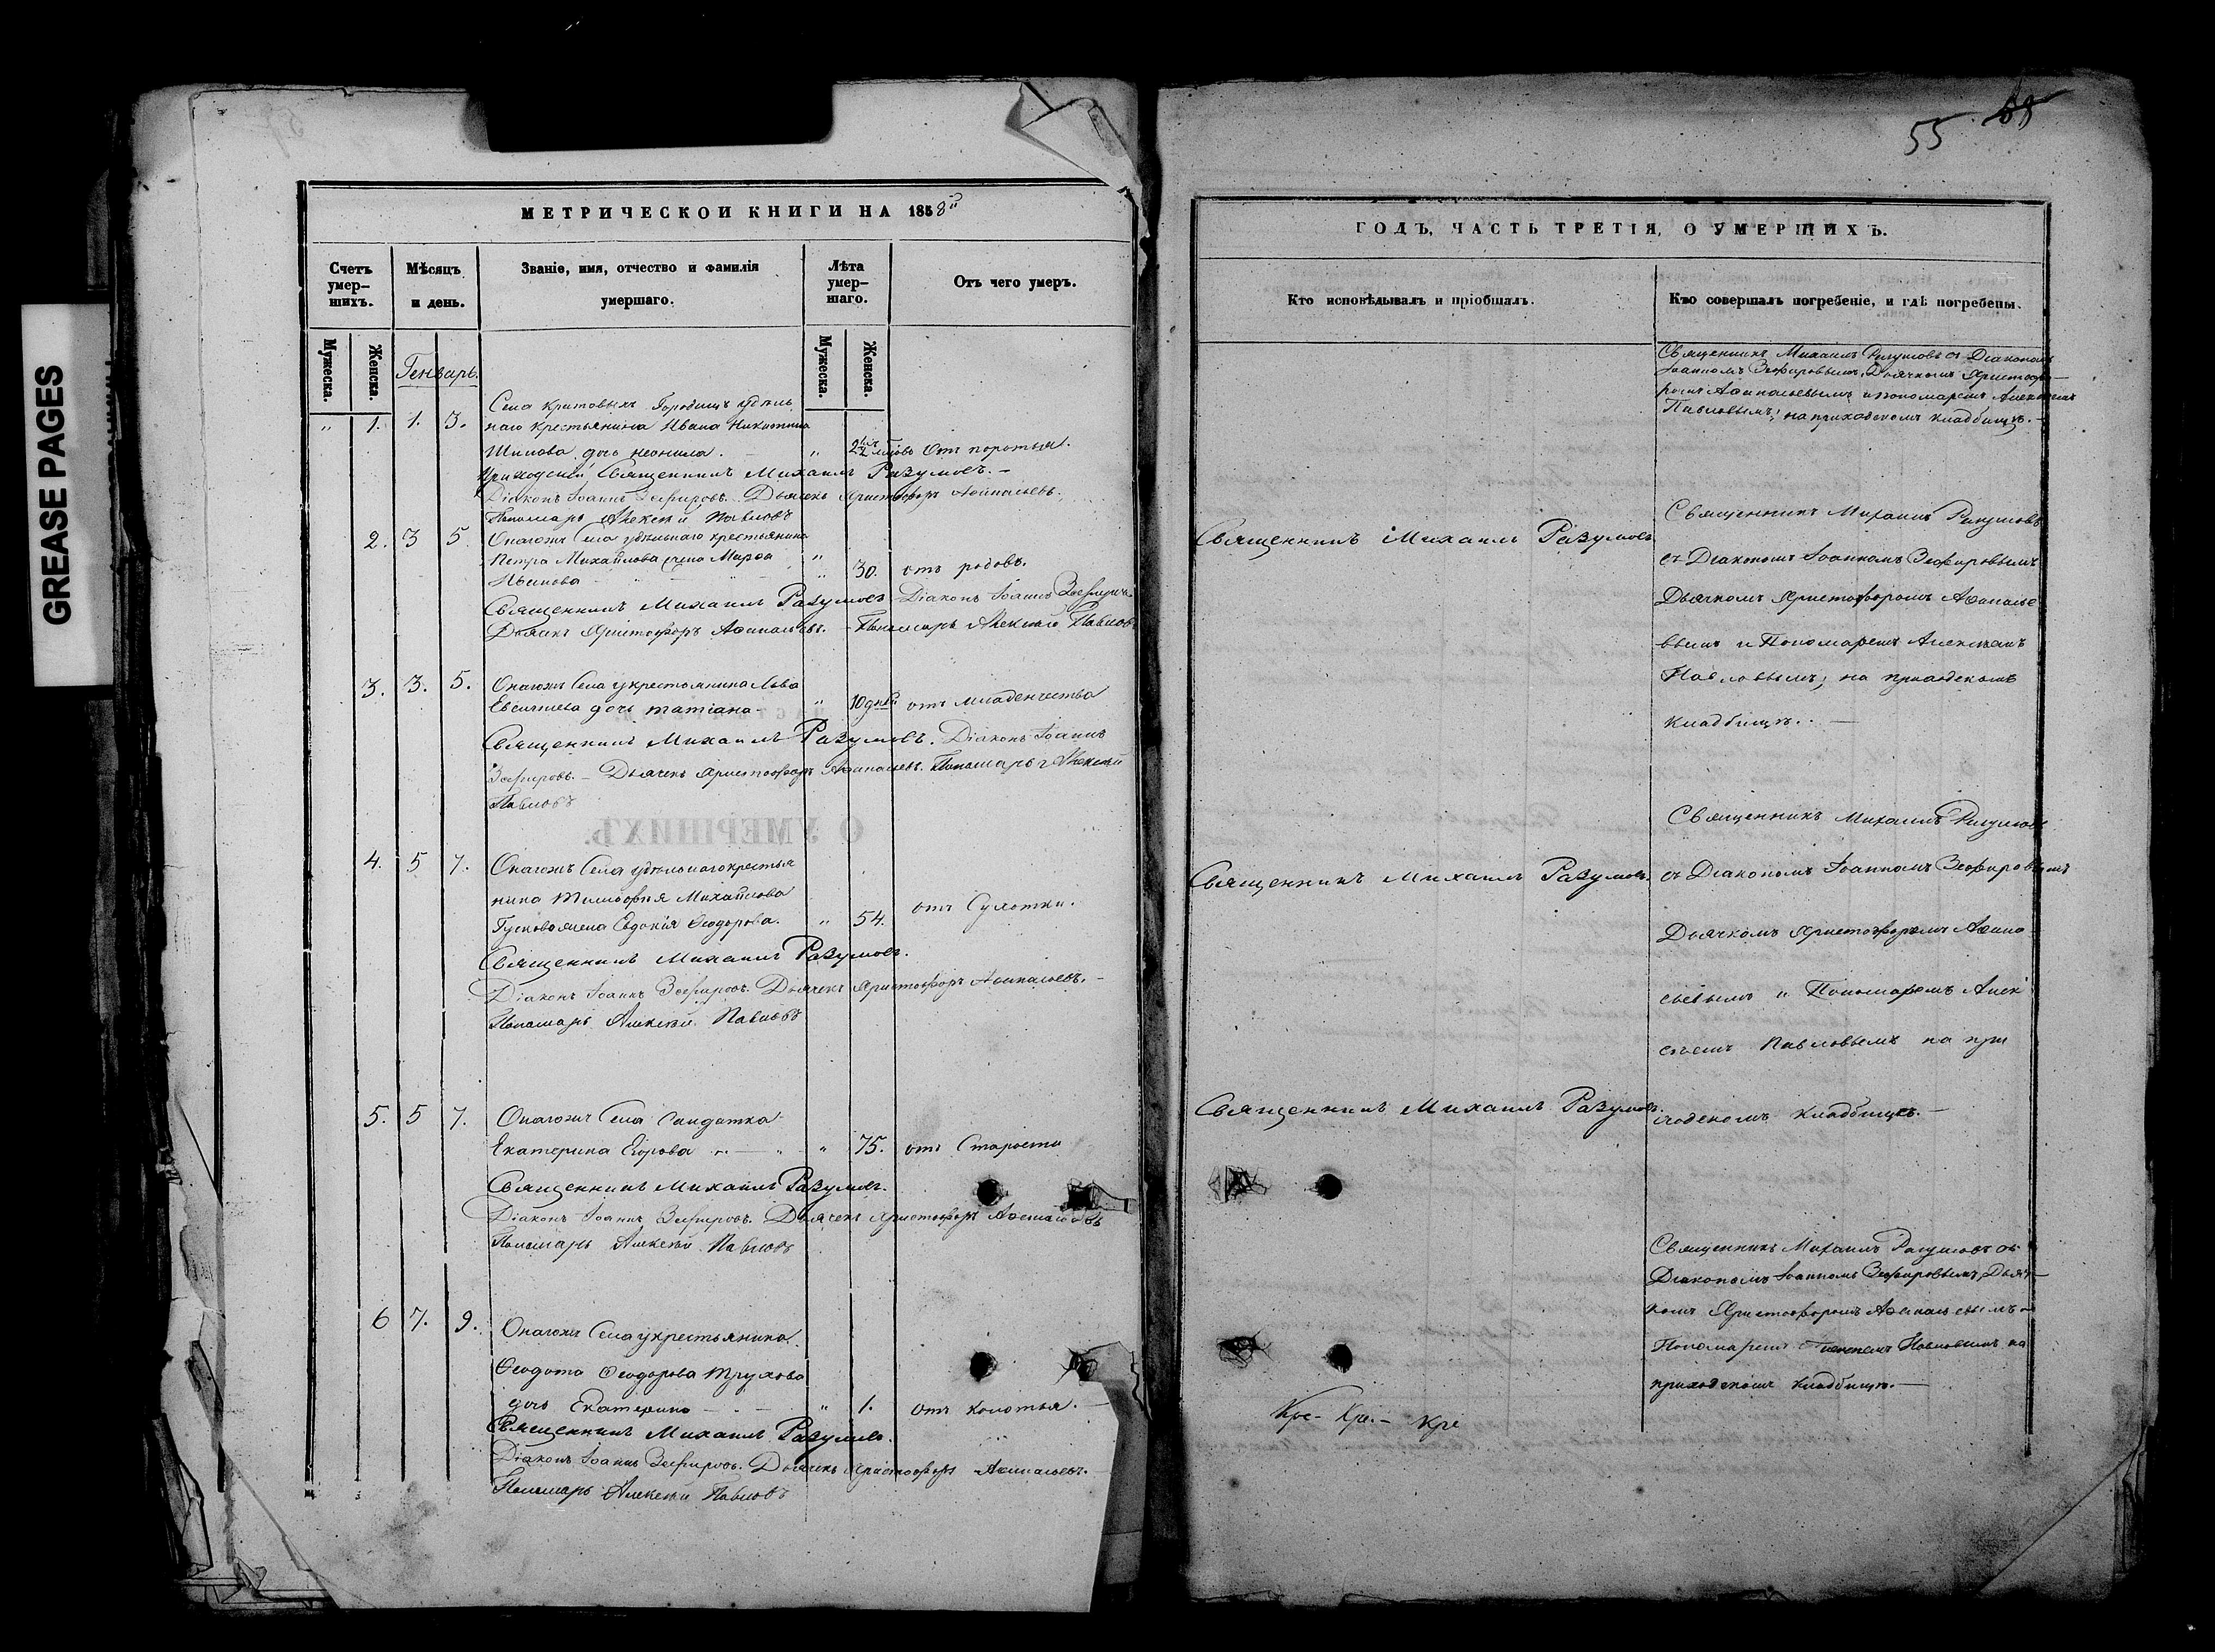 GREASE PAGES
55 58
МЕТРИЧЕСКОЙ КНИГИ НА 1858й
Счетъ умер-шихъ.
Мѣсяцъ и день.
Званіе, имя, отчество и фамилія умершаго.
Лѣта умер-шаго.
Отъ чего умеръ.
Мужеска.
Женска.
Генварь.
Мужеска.
Женска.
Села Кротовыхъ Городищь удѣль
" 1. 1. 3. наго крестьянина Ивана Никитина
Шипова дочь Неонила. " 2½ лѣтъ От
Приходскій Священникъ Михаилъ Разумовъ. –
Діаконъ Іоаннъ Зефировъ. Дьячекъ Христофоръ Афанасьевъ.
Пономарь Алексѣй Павловъ
2. 3 5. Онагожъ Села удѣльнаго крестьянина
Петра Михайлова жена Марѳа "
Иванова " 30. отъ родовъ.
Священникъ Михаилъ Разумовъ Діаконъ Іоаннъ Зефировъ
Дьячекъ Христофоръ Афанасьевъ. – Пономарь Алексѣй Павловъ
3. 3. 5. Онагожъ Села у крестьянина Льва
Евсигнеева дочь Татіана – " 10 дней отъ младенчества
Священникъ Михаилъ Разумовъ. Діаконъ Іоаннъ
Зефировъ. – Дьячекъ Христофоръ Афанасьевъ. Пономарь Алексѣй
Павловъ
4. 5 7. Онагожъ Села удѣльнаго крестья
нина Тимофея Михайлова
Гускова жена Евдокія Ѳеодорова. " 54. отъ Сухотки.
Священникъ Михаилъ Разумовъ.
Діаконъ Іоаннъ Зефировъ. Дьячекъ Христофоръ Афанасьевъ. –
Пономарь Алексѣй Павловъ
5. 5 7. Онагожъ Села Солдатка
Екатерина Егорова " 75. отъ Старости
Священникъ Михаилъ Разумовъ.
Діаконъ Іоаннъ Зефировъ. Дьячекъ Христофоръ Афанасьевъ
Пономарь Алексѣй Павловъ
6 7. 9. Онагожъ Села у крестьянина
Ѳеодота Ѳеодорова Трухова
дочь Екатерина – " 1. отъ колотья. –
Священникъ Михаилъ Разумовъ.
Діаконъ Іоаннъ Зефировъ. Дьячекъ Христофоръ Афанасьевъ. –
Пономарь Алексѣй Павловъ
ГОДЪ, ЧАСТЬ ТРЕТІЯ, О УМЕРШИХЪ.
Кто исповѣдывалъ и пріобщалъ.
Кто совершалъ погребеніе, и гдѣ погребены.
Священникъ Михаилъ Разумовъ съ Діакономъ
Іоанномъ Зефировымъ, Дьячкомъ Христофо–
ромъ Афанасьевымъ и пономаремъ Алексѣемъ
Павловымъ; на приходскомъ кладбищѣ. –
Священникъ Михаилъ Разумовъ
Священникъ Михаилъ Разумовъ
съ Діакономъ Іоанномъ Зефировымъ
Дьячкомъ Христофоромъ Афанасье
вымъ и Пономаремъ Алексѣемъ
Павловымъ; на приходскомъ
кладбищѣ. –
Священникъ Михаилъ Разумовъ.
Священникъ Михаилъ Разумовъ
съ Діакономъ Іоанномъ Зефировымъ
Дьячкомъ Христофоромъ Афана
сьевымъ и Пономаремъ Алек
сѣемъ Павловымъ на при
Священникъ Михаилъ Разумовъ.
ходскомъ кладбищѣ. –
Священникъ Михаилъ Разумовъ съ
Діакономъ Іоанномъ Зефировымъ, Дьяч–
комъ Христофоромъ Афанасьевымъ и
Пономаремъ Алексѣемъ Павловымъ на
приходскомъ кладбищѣ. –
Кре- Хре. – Кре